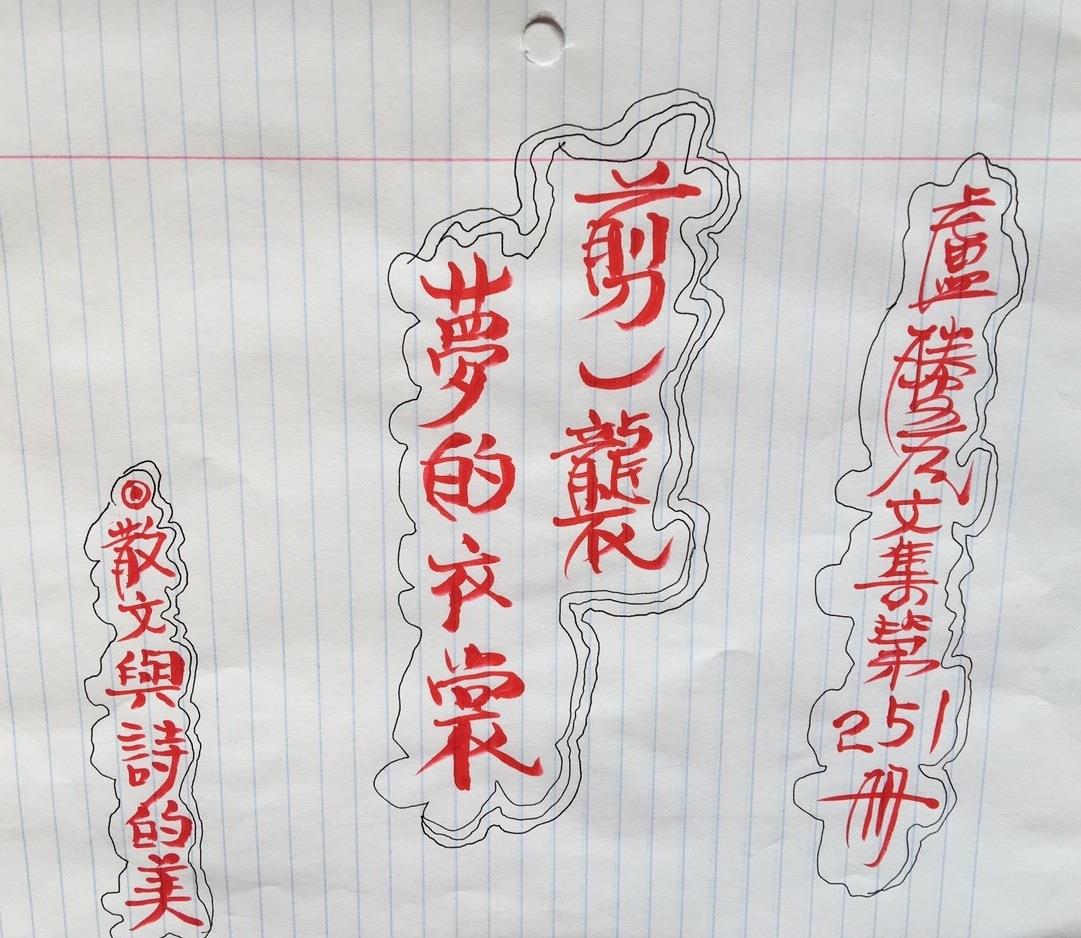 盧勝彥文集第251冊
剪一襲
夢的衣裳
◎散文與詩的美